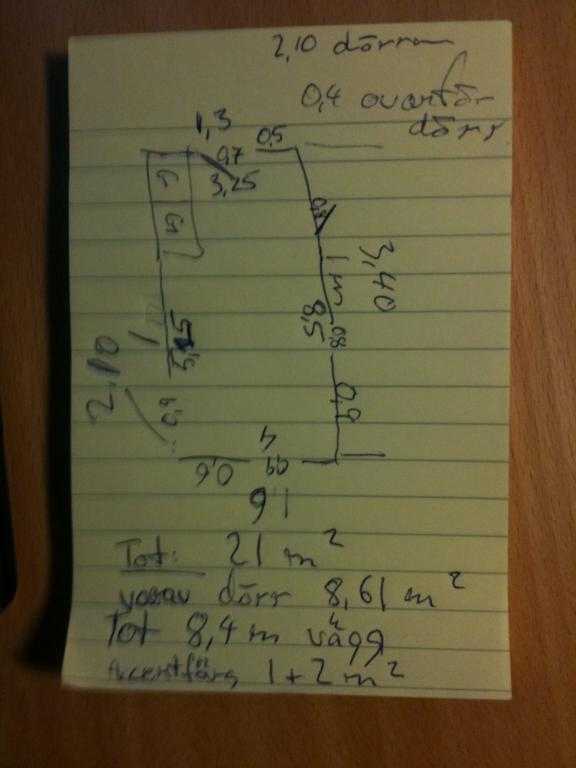 2,10 dörrar
0,4 ovanför
dörr
1,3
0,5
0,7
3,25
G
G
0,8
1 m
3,40
8,5
0,8
0,9
5
2,10
0,9
4
0,6
0,9
1,6
Tot: 21 m²
varav dörr 8,61 m²
Tot 8,4 m vägg
Accentfärg 1+2 m²